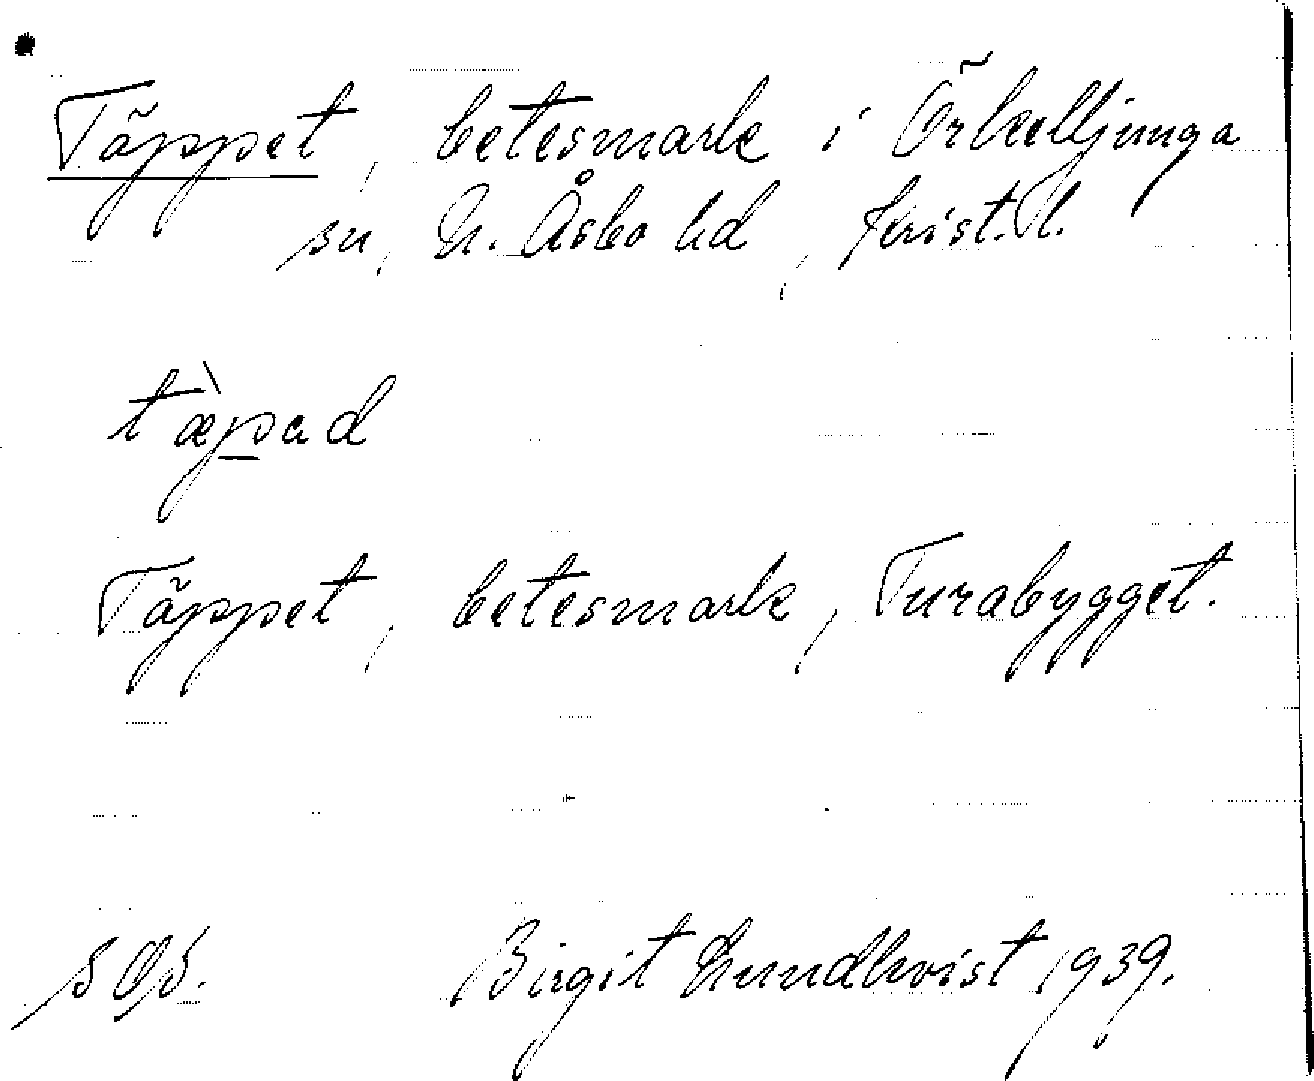 Täppet, betesmark i Örkelljunga
sn, N. Åsbo hd, Krist. l.
tæ̀pad
Täppet, betesmark, Turabygget.
Birgit Lundkvist 1939.